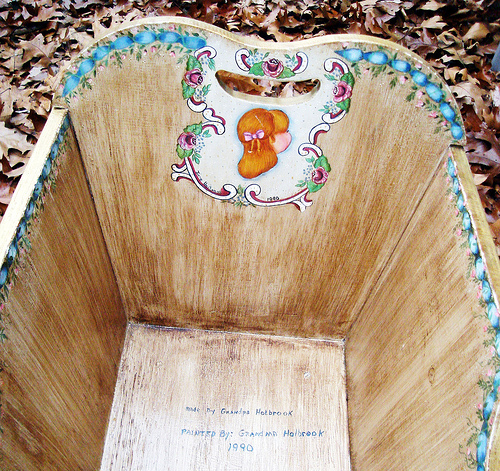 1990
made by Grandpa Holbrook
PAINTED By: GRANDMA Holbrook
1990